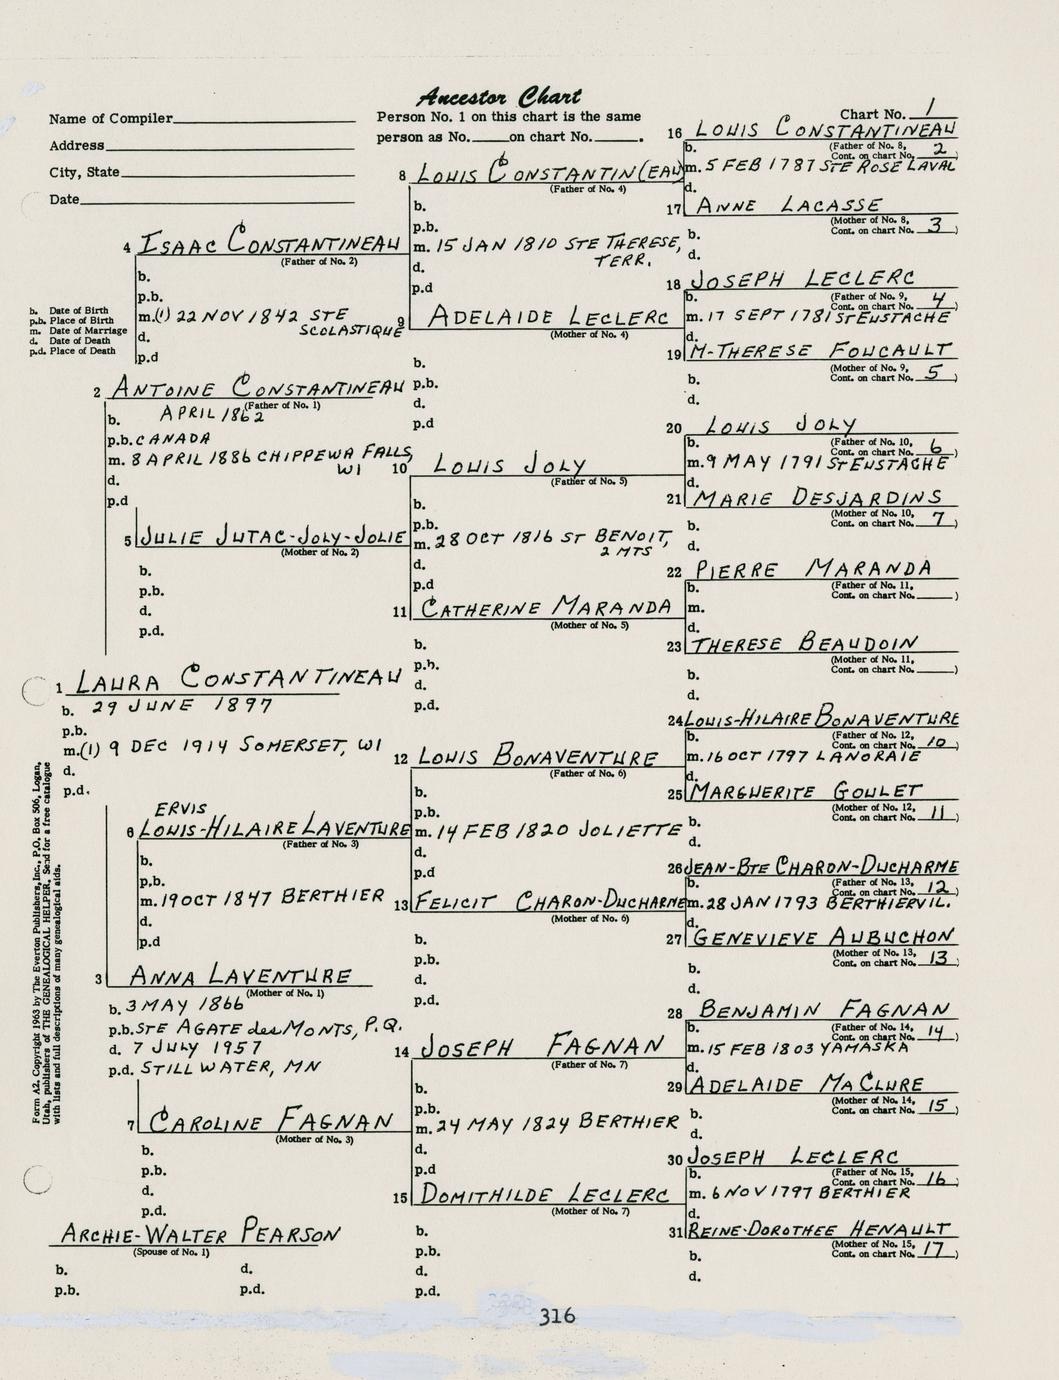 Ancestor Chart
Name of Compiler
Address
City, State
Date
Person No. 1 on this chart is the same
person as No. on chart No. .
Chart No. 1
16 LOUIS CONSTANTINEAU
b. (Father of No. 8,
Cont. on chart No. 2 )
m. 5 FEB 1787 STE ROSE LAVAL
d.
8 LOUIS CONSTANTIN(EAU)
(Father of No. 4)
b.
p.b.
m. 15 JAN 1810 STE THERESE,
TERR.
d.
p.d
17 ANNE LACASSE
(Mother of No. 8,
Cont. on chart No. 3 )
b.
d.
4 ISAAC CONSTANTINEAU
(Father of No. 2)
b.
p.b.
m.(1) 22 NOV 1842 STE
SCOLASTIQUE
d.
p.d
18 JOSEPH LECLERC
b. (Father of No. 9,
Cont. on chart No. 4 )
m. 17 SEPT 1781 ST EUSTACHE
d.
9 ADELAIDE LECLERC
(Mother of No. 4)
b.
p.b.
d.
p.d
19 M-THERESE FOUCAULT
(Mother of No. 9,
Cont. on chart No. 5 )
b.
d.
b. Date of Birth
p.b. Place of Birth
m. Date of Marriage
d. Date of Death
p.d. Place of Death
2 ANTOINE CONSTANTINEAU
(Father of No. 1)
b. APRIL 1862
p.b. CANADA
m. 8 APRIL 1886 CHIPPEWA FALLS,
WI
d.
p.d
20 LOUIS JOLY
b. (Father of No. 10,
Cont. on chart No. 6 )
m. 9 MAY 1791 ST EUSTACHE
d.
10 LOUIS JOLY
(Father of No. 5)
b.
p.b.
m. 28 OCT 1816 ST BENOIT,
2 MTS
d.
p.d
21 MARIE DESJARDINS
(Mother of No. 10,
Cont. on chart No. 7 )
b.
d.
5 JULIE JUTAC-JOLY-JOLIE
(Mother of No. 2)
b.
p.b.
d.
p.d.
22 PIERRE MARANDA
b. (Father of No. 11,
Cont. on chart No. )
m.
d.
11 CATHERINE MARANDA
(Mother of No. 5)
b.
p.b.
d.
p.d.
23 THERESE BEAUDOIN
(Mother of No. 11,
Cont. on chart No. )
b.
d.
1 LAURA CONSTANTINEAU
b. 29 JUNE 1897
p.b.
m.(1) 9 DEC 1914 SOMERSET, WI
d.
p.d.
24 LOUIS-HILAIRE BONAVENTURE
b. (Father of No. 12,
Cont. on chart No. 10 )
m. 16 OCT 1797 LANORAIE
d.
12 LOUIS BONAVENTURE
(Father of No. 6)
b.
p.b.
m. 14 FEB 1820 JOLIETTE
d.
p.d
25 MARGUERITE GOULET
(Mother of No. 12,
Cont. on chart No. 11 )
b.
d.
ERVIS
6 LOUIS-HILAIRE LAVENTURE
(Father of No. 3)
b.
p.b.
m. 19 OCT 1847 BERTHIER
d.
p.d
26 JEAN-BTE CHARON-DUCHARME
b. (Father of No. 13,
Cont. on chart No. 12 )
m. 28 JAN 1793 BERTHIERVIL.
d.
13 FELICIT CHARON-DUCHARNE
(Mother of No. 6)
b.
p.b.
d.
p.d.
27 GENEVIEVE AUBUCHON
(Mother of No. 13,
Cont. on chart No. 13 )
b.
d.
3 ANNA LAVENTURE
(Mother of No. 1)
b. 3 MAY 1866
p.b. STE AGATE des MONTS, P.Q.
d. 7 JULY 1957
p.d. STILLWATER, MN
28 BENJAMIN FAGNAN
b. (Father of No. 14,
Cont. on chart No. 14 )
m. 15 FEB 1803 YAMASKA
d.
14 JOSEPH FAGNAN
(Father of No. 7)
b.
p.b.
m. 24 MAY 1824 BERTHIER
d.
p.d
29 ADELAIDE MACLURE
(Mother of No. 14,
Cont. on chart No. 15 )
b.
d.
7 CAROLINE FAGNAN
(Mother of No. 3)
b.
p.b.
d.
p.d.
30 JOSEPH LECLERC
b. (Father of No. 15,
Cont. on chart No. 16 )
m. 6 NOV 1797 BERTHIER
d.
15 DOMITHILDE LECLERC
(Mother of No. 7)
b.
p.b.
d.
p.d.
31 REINE-DOROTHEE HENAULT
(Mother of No. 15,
Cont. on chart No. 17 )
b.
d.
ARCHIE-WALTER PEARSON
(Spouse of No. 1)
b. d.
p.b. p.d.
Form A2. Copyright 1963 by The Everton Publishers, Inc., P.O. Box 506, Logan,
Utah, publishers of THE GENEALOGICAL HELPER. Send for a free catalogue
with lists and full descriptions of many genealogical aids.
316